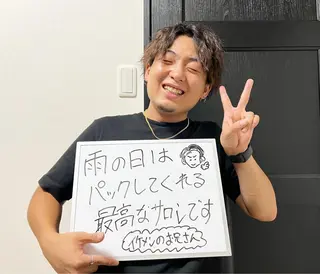 雨の日は
パックしてくれる
最高なサロンです
イケメンのお兄さん